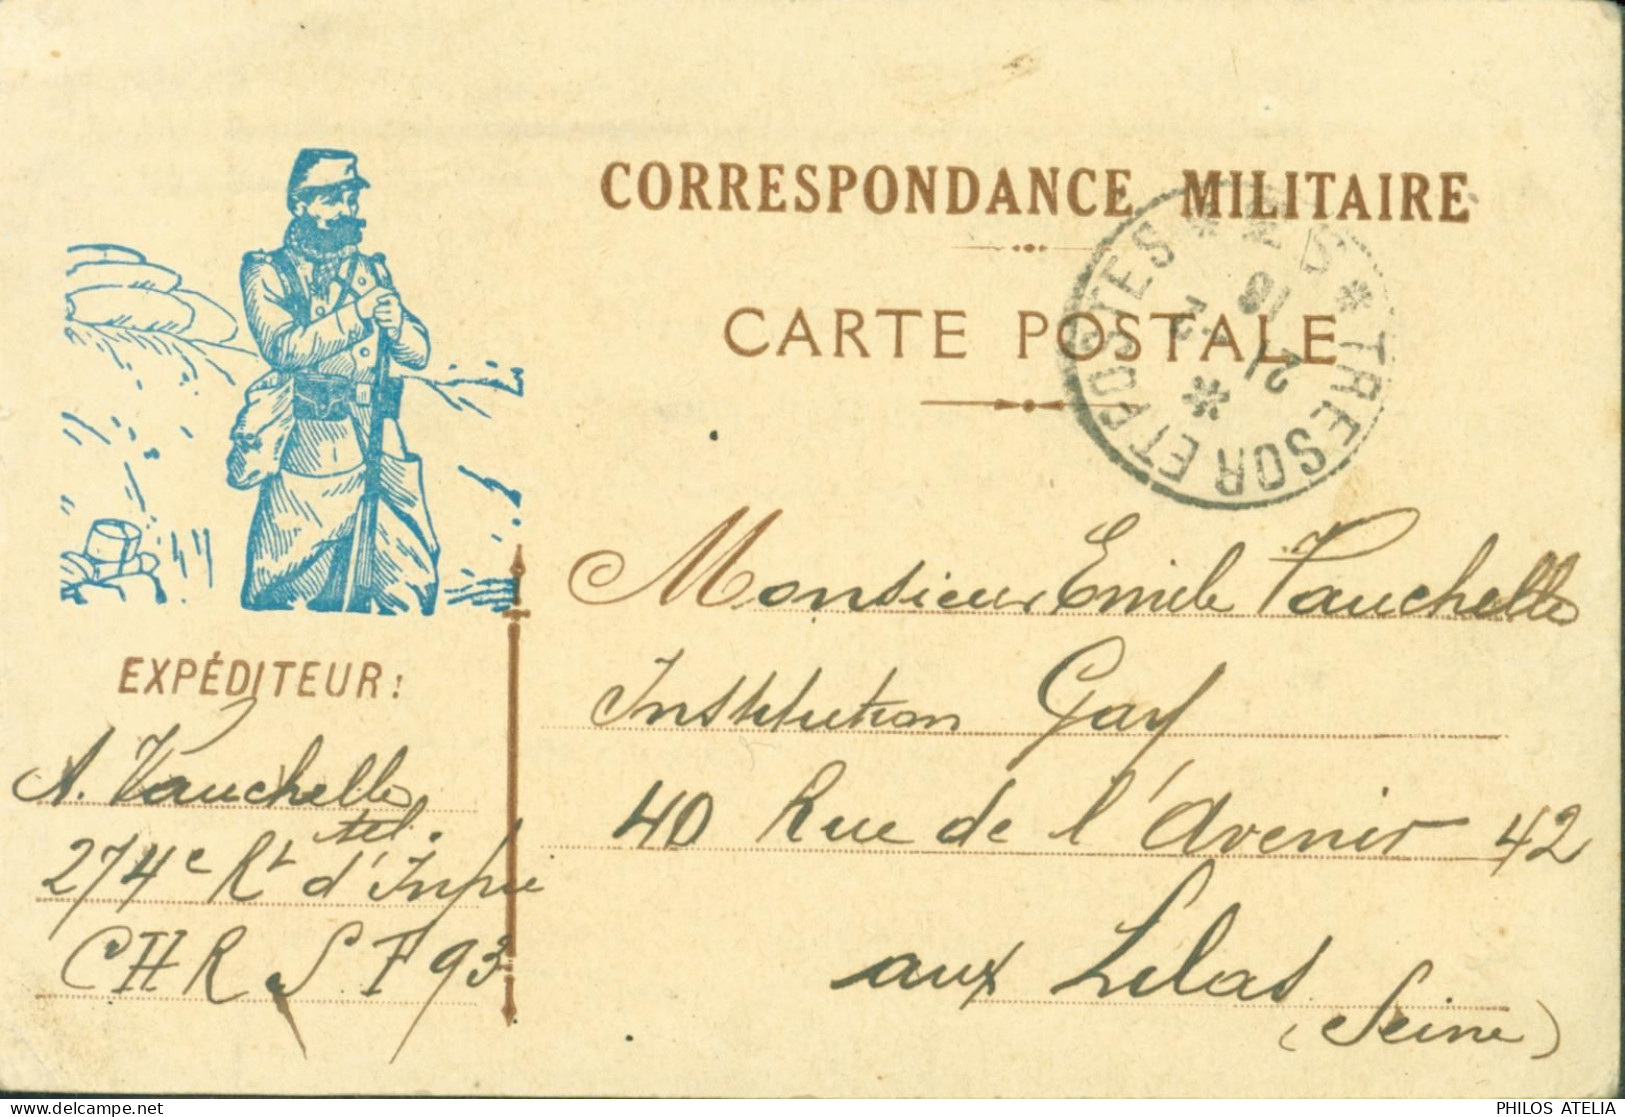 CORRESPONDANCE MILITAIRE
CARTE POSTALE
TRESOR ET POSTES
21 - 2
16
EXPÉDITEUR :
A. Vauchelle
tel.
274e Rt d'Infie
CHR S P 93
Monsieur Emile Vauchelle
Institution Gay
40 Rue de l'Avenir 42
aux Lilas
(Seine)
PHILOS ATELIA